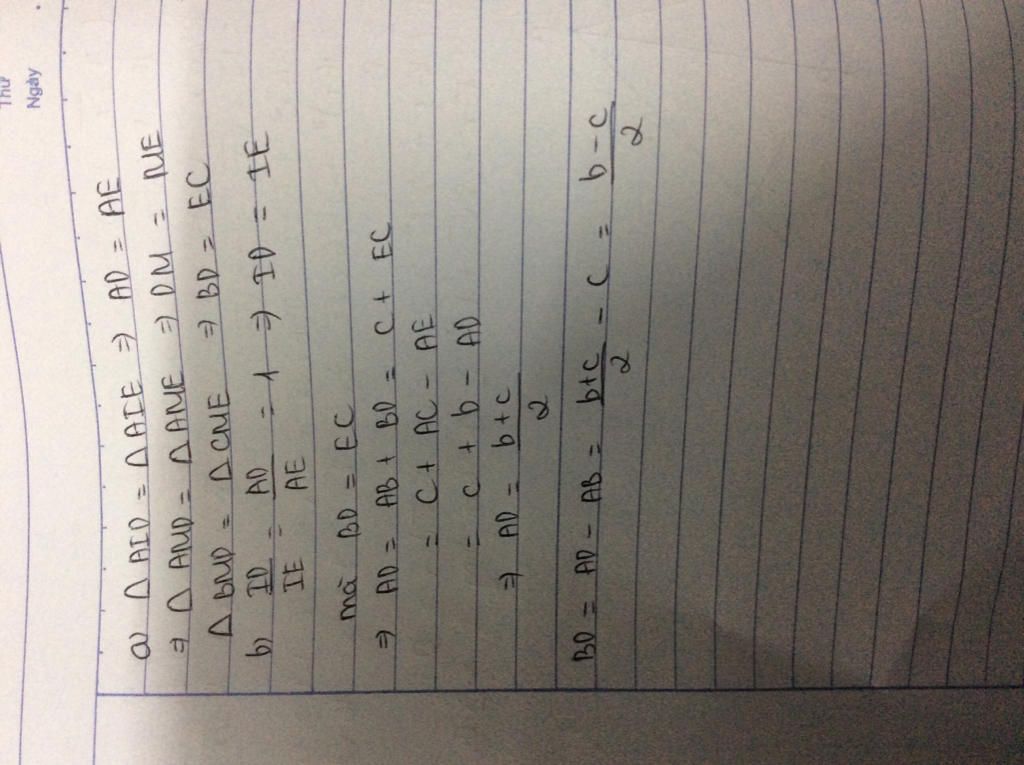 Thứ
Ngày
a) Δ AID = Δ AIE ⇒ AD = AE
⇒ Δ AMD = Δ AME ⇒ DM = ME
Δ BMD = Δ CME ⇒ BD = EC
b) ID/IE = AD/AE = 1 ⇒ ID = IE
mà BD = EC
⇒ AD = AB + BD = C + EC
= C + AC - AE
= C + b - AD
⇒ AD = b+c/2
BD = AD - AB = b+c/2 - C = b-c/2